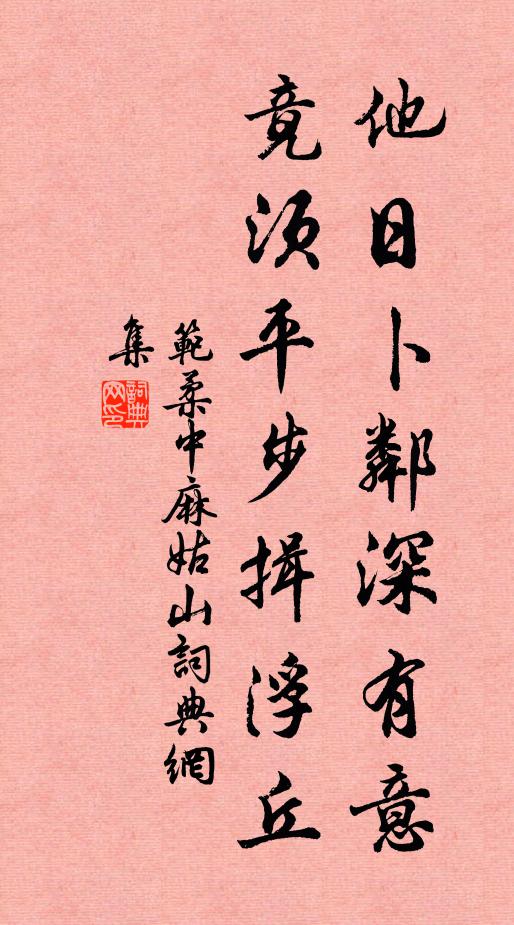 他日卜鄰深有意
竟須平步揖浮丘
範柔中麻姑山詞典網
集
詞典網印